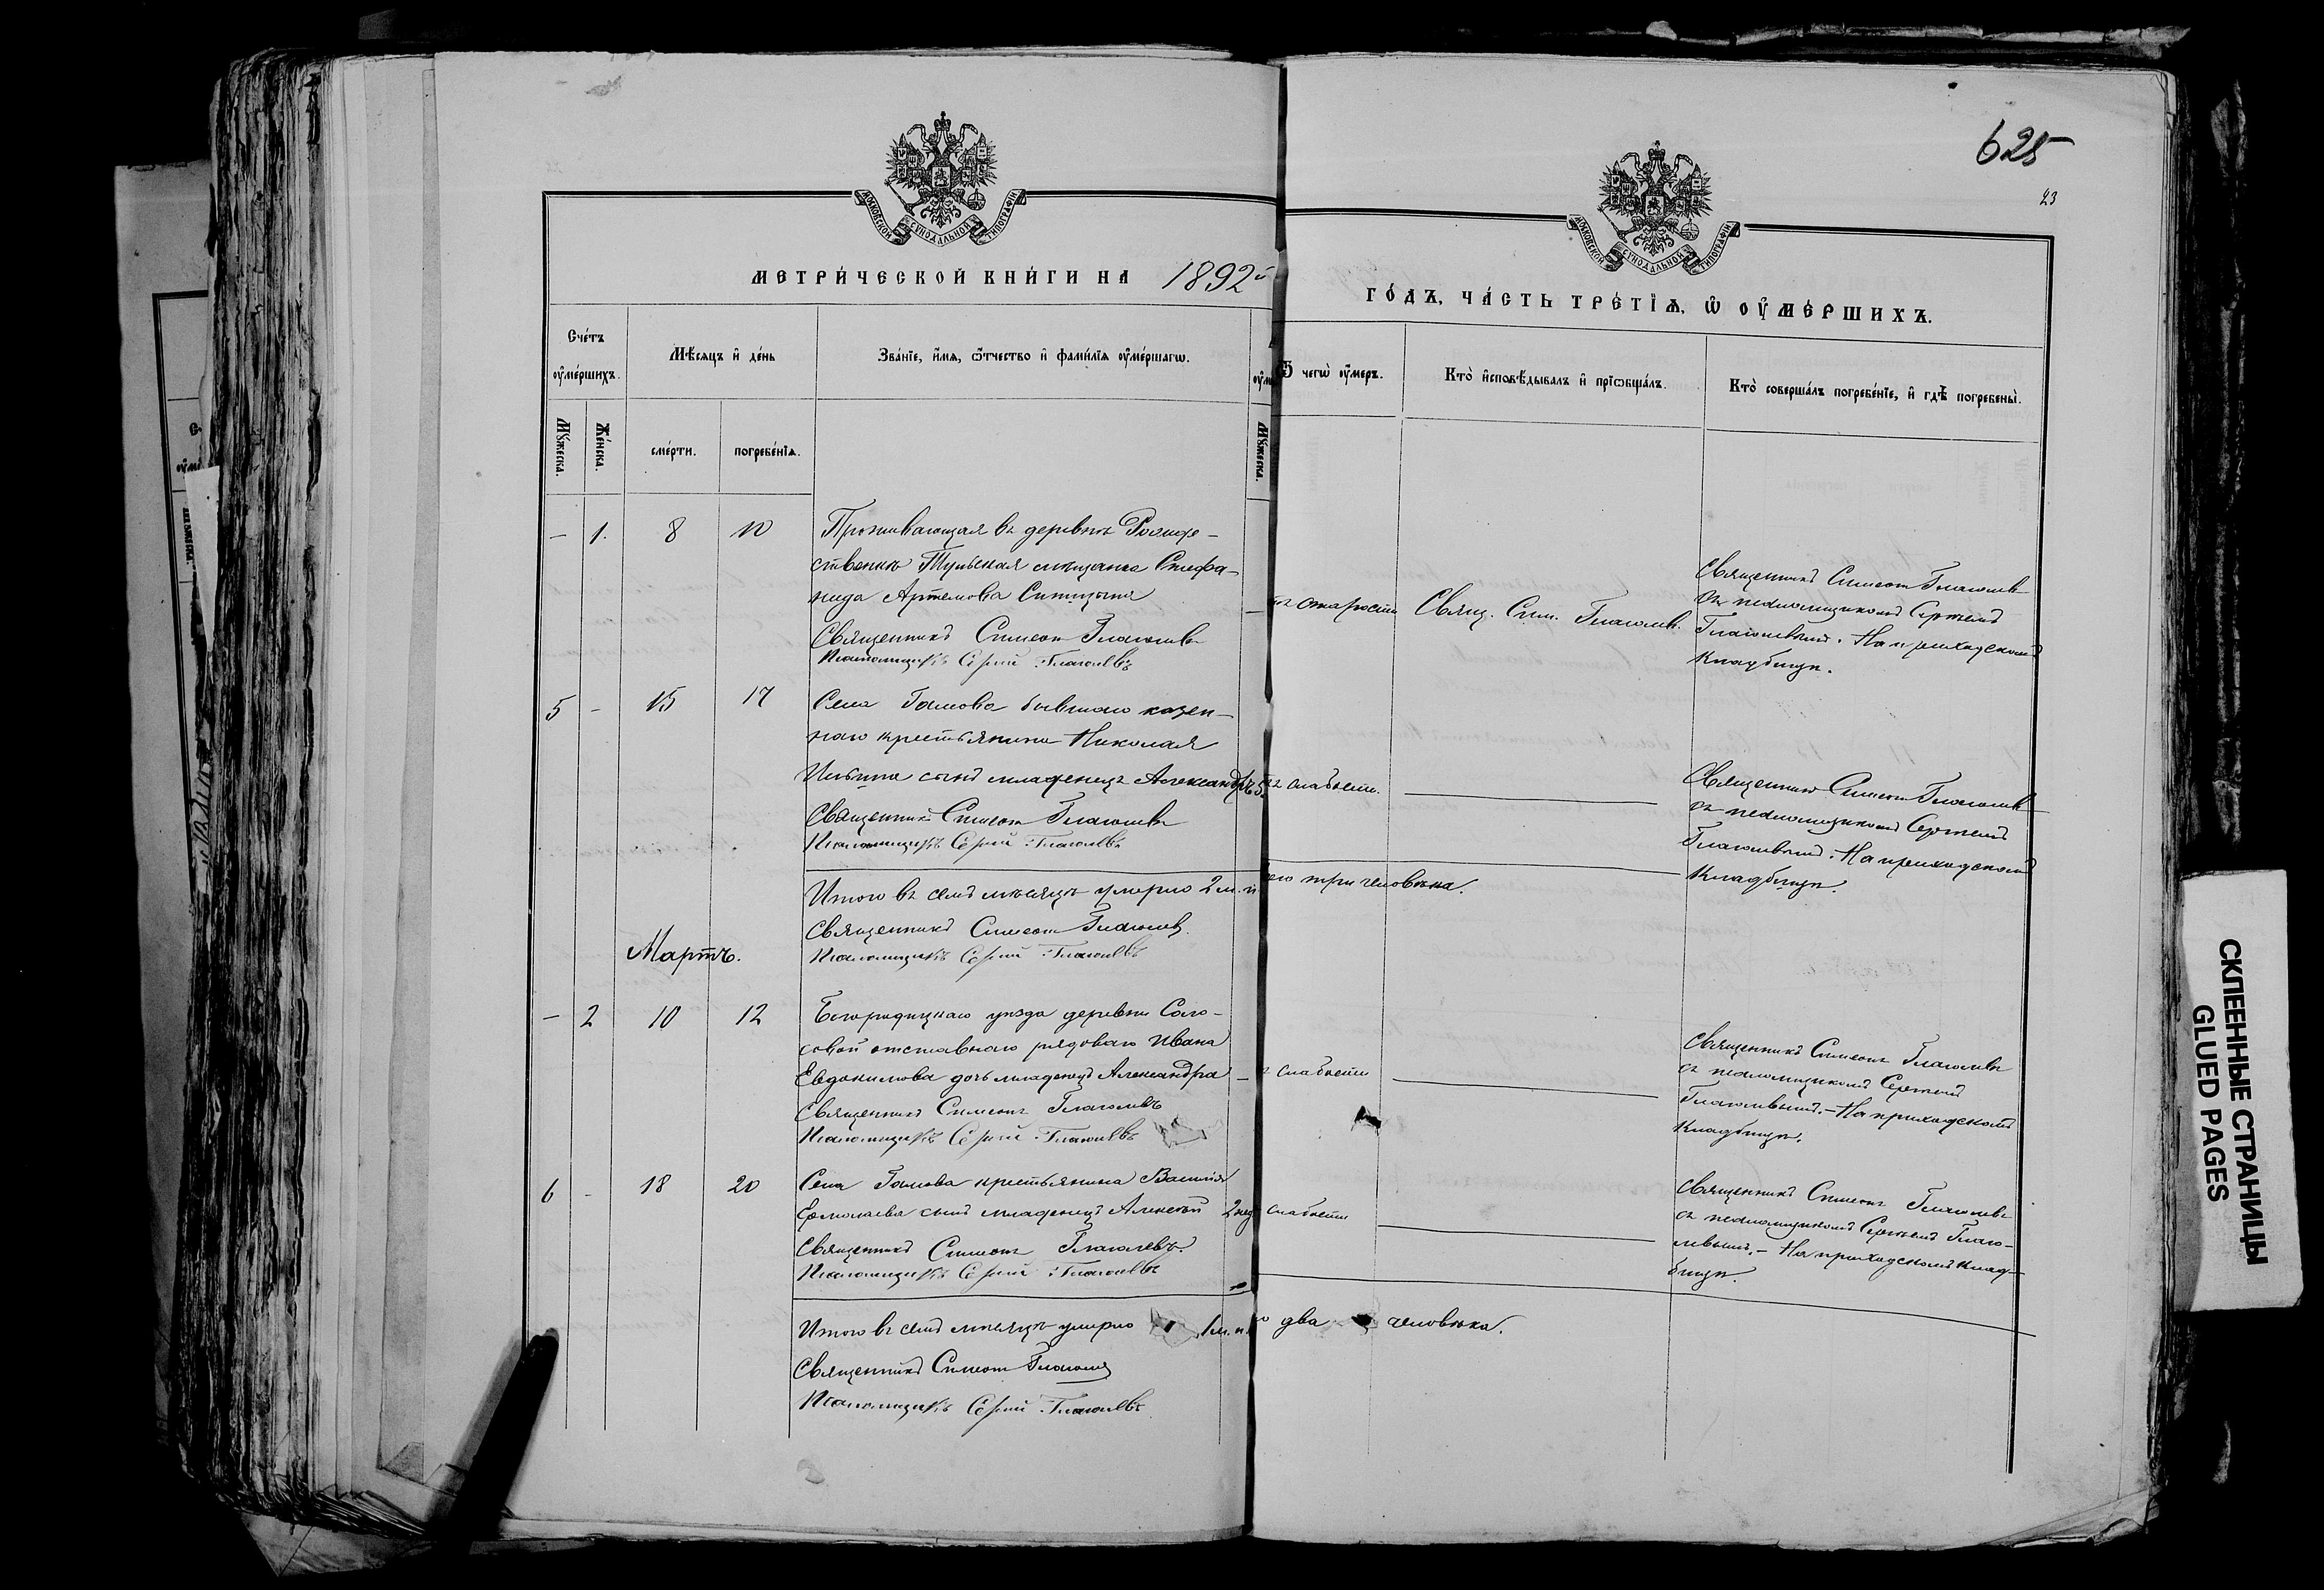 625
23
МОСКОВСКОЙ СѴНОДАЛЬНОЙ ТИПОГРАФІИ
МОСКОВСКОЙ СѴНОДАЛЬНОЙ ТИПОГРАФІИ
МЕТРИ́ЧЕСКОЙ КНИ́ГИ НА 1892й
ГО́ДЪ, ЧА́СТЬ ТРЕ́ТІѦ, Ѽ ОУ҆МЕ́РШИХЪ.
Сче́тъ оу҆ме́ршихъ.
Мѣ́сяцъ и҆ де́нь
Зва́нїе, и҆́мя, ѻ҆́тчество и҆ фами́лїя оу҆ме́ршагѡ.
Ѿ чегѡ̀ оу҆́меръ.
Кто̀ и҆сповѣ́дывалъ и҆ прїѡбща́лъ.
Кто̀ соверша́лъ погребе́нїе, и҆ гдѣ̀ погребены̀.
Му́жеска.
Же́нска.
сме́рти.
погребе́нїѧ.
Му́жеска.
— 1. 8 10
Проживающая въ деревнѣ Рожде-
ственкѣ Тульская мѣщанка Стефа-
нида Артемова Синицына
Священникъ Симеонъ Глаголевъ
Псаломщикъ Сергій Глаголевъ
— старости
Свящ. Сим. Глаголевъ.
Священникъ Симеонъ Глаголевъ
съ псаломщикомъ Сергіемъ
Глаголевымъ. На приходскомъ
кладбищѣ.
5 - 15 17
Села Гамова бывшаго казен-
наго крестьянина Николая
Ильина сынъ младенецъ Александръ
Священникъ Симеонъ Глаголевъ
Псаломщикъ Сергій Глаголевъ
слабости.
Священникъ Симеонъ Глаголевъ
съ псаломщикомъ Сергіемъ
Глаголевымъ. На приходскомъ
кладбищѣ.
Итого въ семъ мѣсяцѣ умерло 2 м. п. три человѣка.
Священникъ Симеонъ Глаголевъ
Псаломщикъ Сергій Глаголевъ
Мартъ.
— 2 10 12
Богородицкаго уѣзда деревни
отставнаго рядоваго Ивана
Евдокимова дочь младенецъ Александра
Священникъ Симеонъ Глаголевъ
Псаломщикъ Сергій Глаголевъ
— слабости
Священникъ Симеонъ Глаголевъ
съ псаломщикомъ Сергіемъ
Глаголевымъ. — На приходскомъ
кладбищѣ.
6 - 18 20
Села Гамова крестьянина Василія
Ермолаева сынъ младенецъ Алексѣй
Священникъ Симеонъ Глаголевъ.
Псаломщикъ Сергій Глаголевъ
2 нед слабости
Священникъ Симеонъ Глаголевъ
съ псаломщикомъ Сергіемъ Глаго-
левымъ. — На приходскомъ клад-
бищѣ.
Итого въ семъ мѣсяцѣ умерло 1 м. п. два человѣка.
Священникъ Симеонъ Глаголевъ
Псаломщикъ Сергій Глаголевъ
СКЛЕЕННЫЕ СТРАНИЦЫ
GLUED PAGES